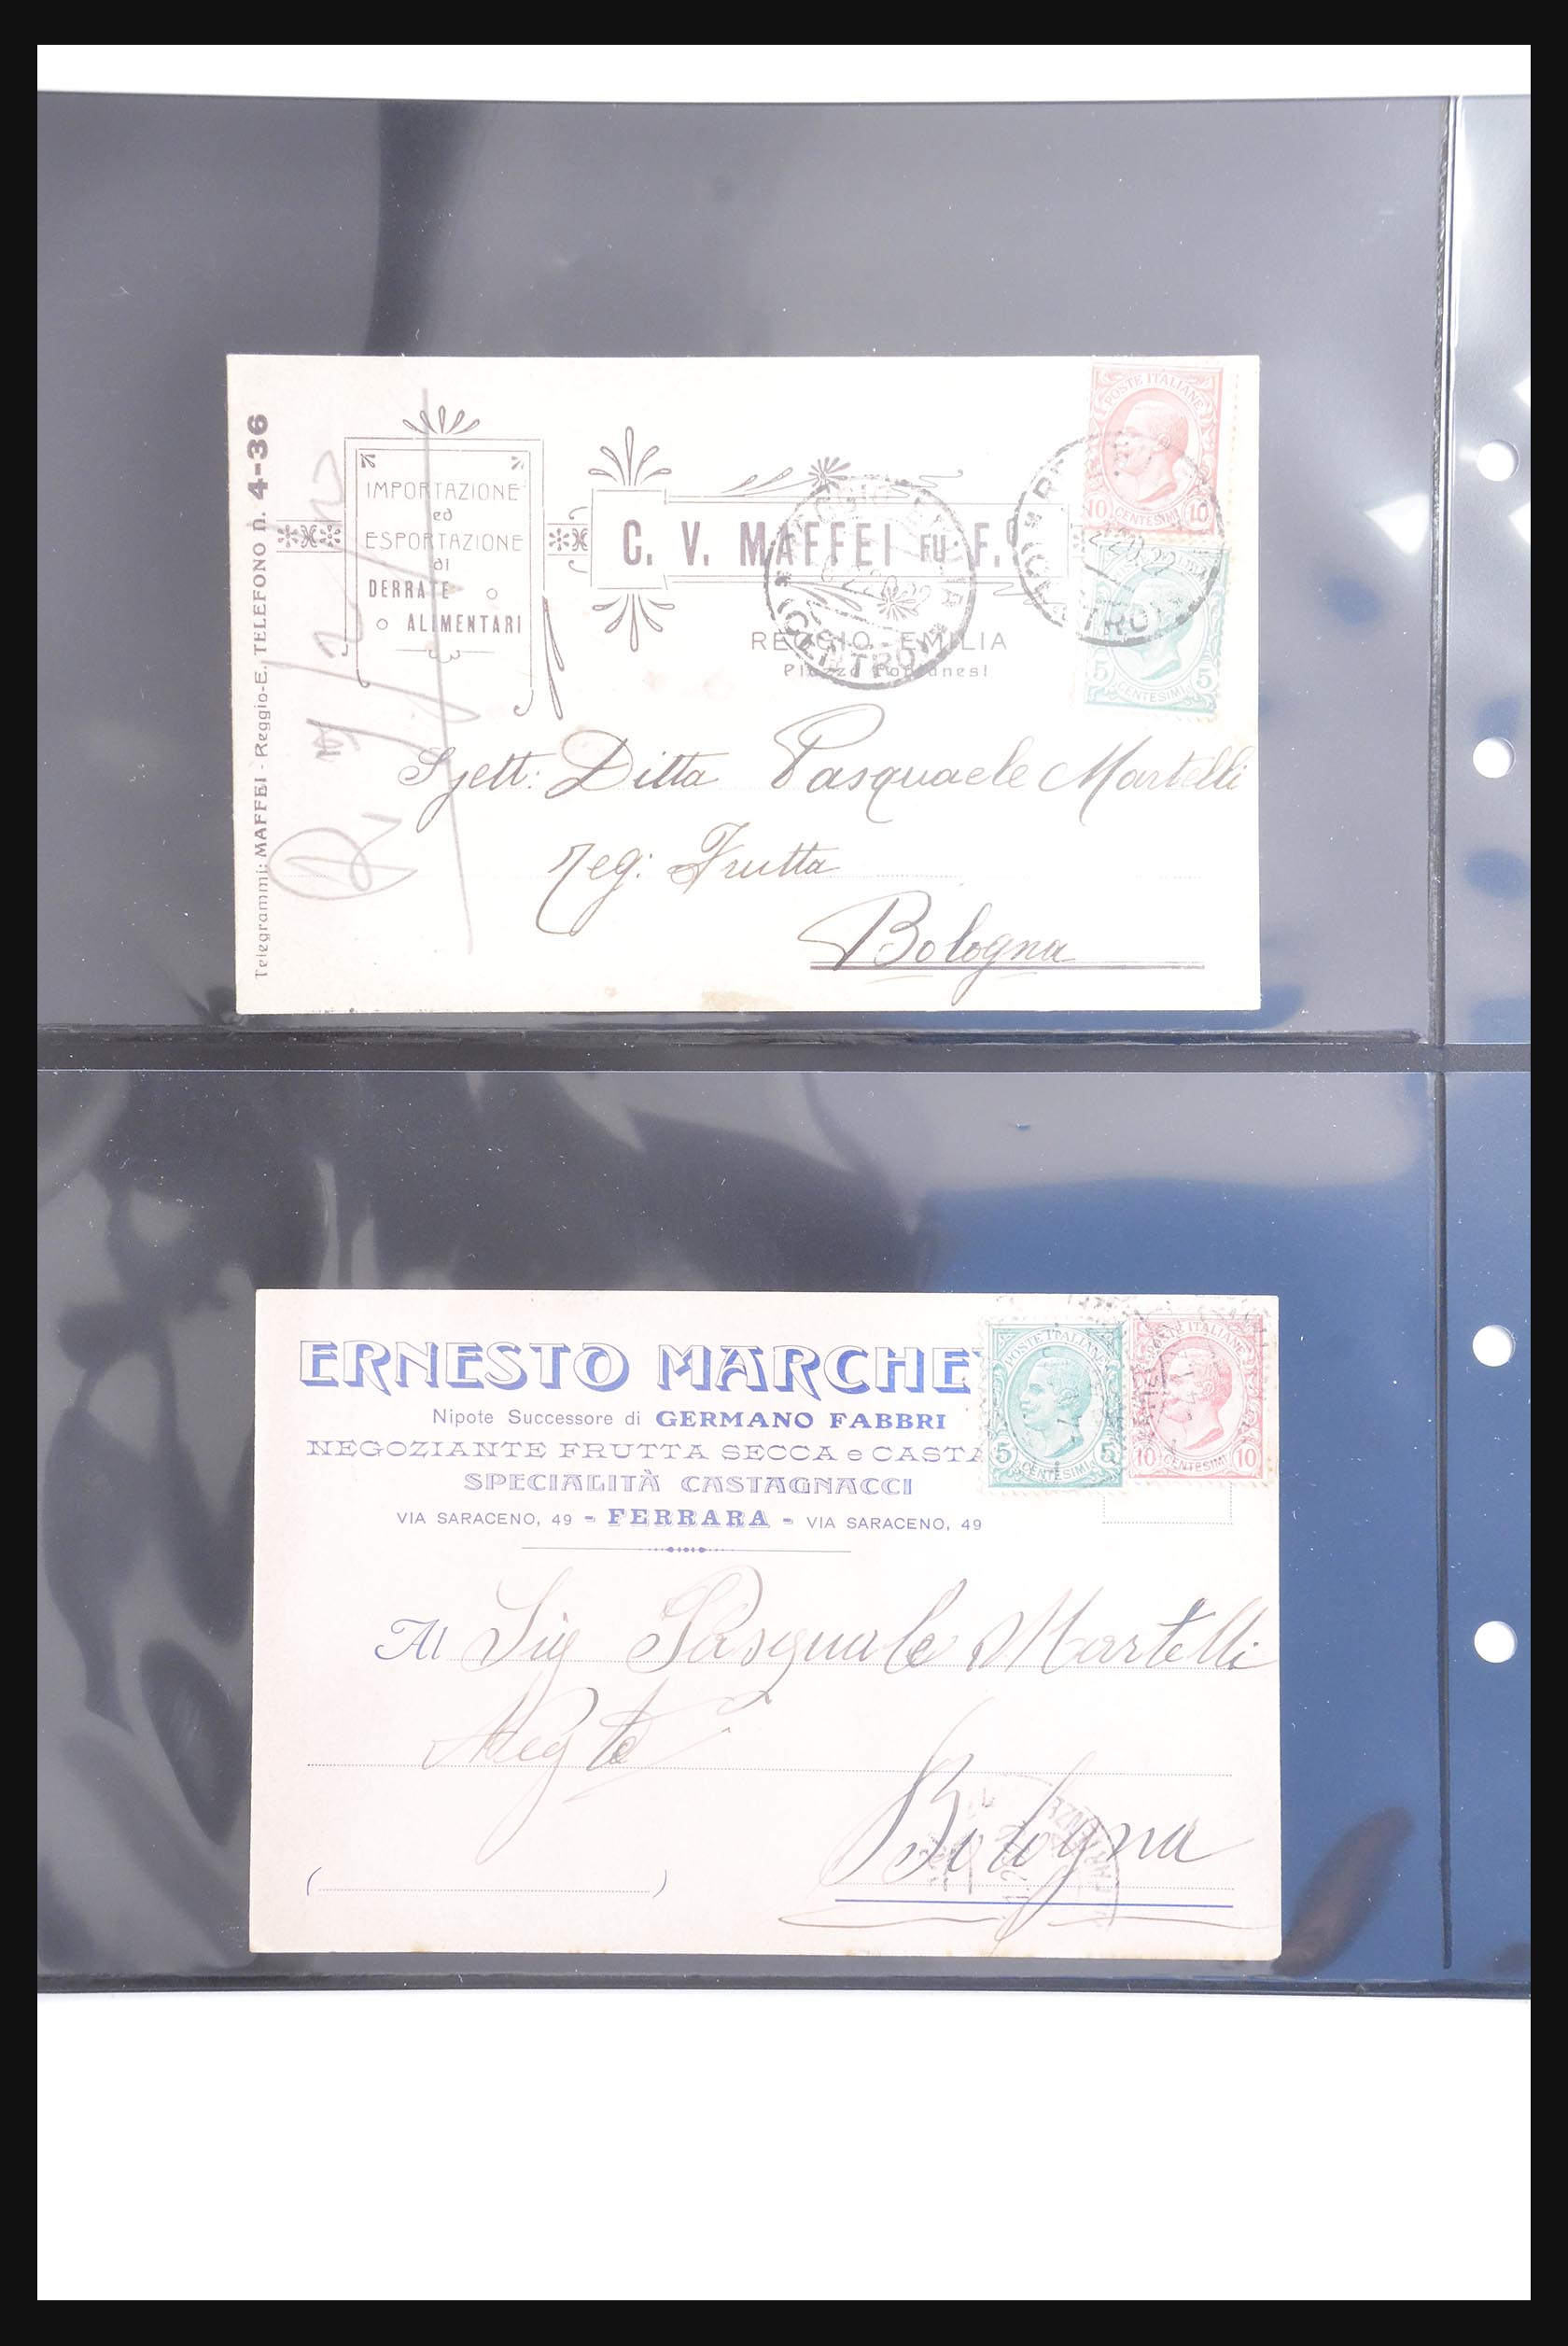 Telegrammi: MAFFEI - Reggio-E. TELEFONO n. 4-36
IMPORTAZIONE
ed
ESPORTAZIONE
di
DERRATE
ALIMENTARI
C. V. MAFFEI FU F.
REGGIO - EMILIA
Piazza Fontanesi
POSTE ITALIANE
10 CENTESIMI 10
5 CENTESIMI 5
Spett: Ditta Pasquaele Martelli
neg: Frutta
Bologna
ERNESTO MARCHE
Nipote Successore di GERMANO FABBRI
NEGOZIANTE FRUTTA SECCA e CASTA
SPECIALITÀ CASTAGNACCI
VIA SARACENO, 49 - FERRARA - VIA SARACENO, 49
POSTE ITALIANE
5 CENTESIMI 5
POSTE ITALIANE
10 CENTESIMI 10
Al Sig Pasquale Martelli
Negte
Bologna
( )